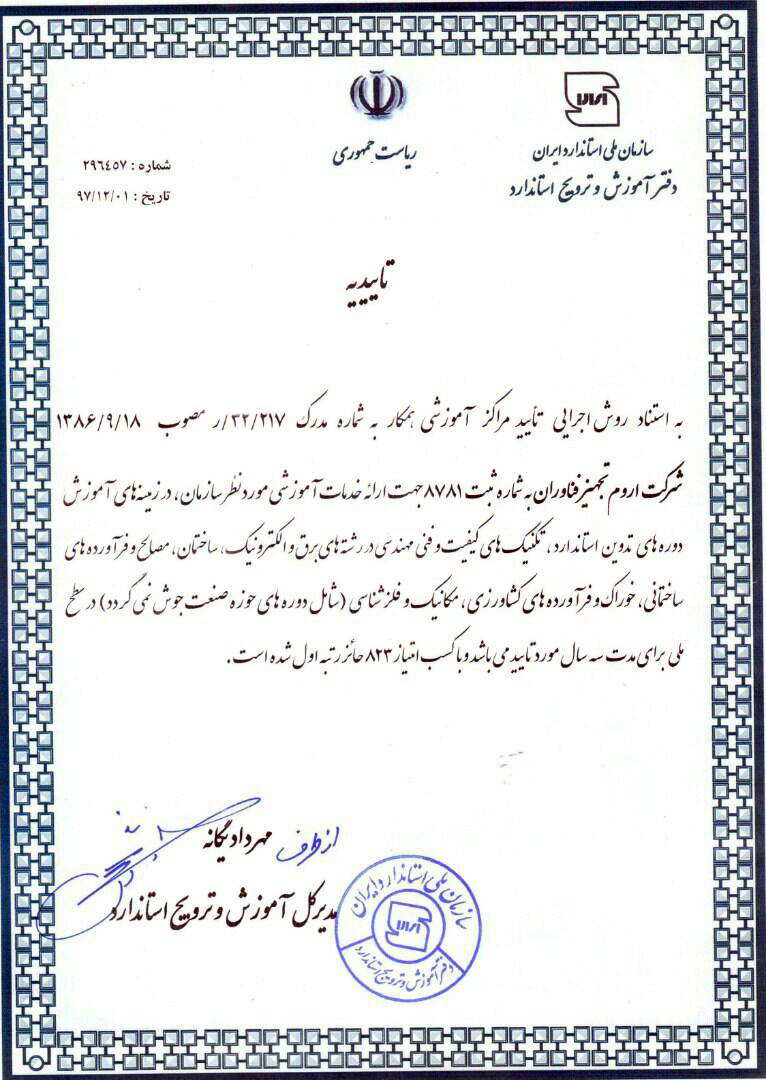 سازمان ملی استاندارد ایران
دفتر آموزش و ترویج استاندارد
ریاست جمهوری
شماره : ۲۹۶۴۵۷
تاریخ : ۹۷/۱۲/۰۱
تاییدیه
به استناد روش اجرایی تأیید مراکز آموزشی همکار به شماره مدرک ۳۲/۲۱۷/ر مصوب ۱۳۸۶/۹/۱۸
شرکت اروم تجهیز فناوران به شماره ثبت ۸۷۸۱ جهت ارائه خدمات آموزشی مورد نظر سازمان، در زمینه های آموزش
دوره های تدوین استاندارد، تکنیک های کیفیت و فنی مهندسی در رشته های برق و الکترونیک، ساختمان، مصالح و فرآورده های
ساختمانی، خوراک و فرآورده های کشاورزی، مکانیک و فلزشناسی (شامل دوره های حوزه صنعت جوش نمی گردد) در سطح
ملی برای مدت سه سال مورد تایید می باشد و با کسب امتیاز ۸۲۳ حائز رتبه اول شده است.
از طرف مهرداد یگانه
مدیرکل آموزش و ترویج استاندارد
سازمان ملی استاندارد ایران
دفتر آموزش و ترویج استاندارد